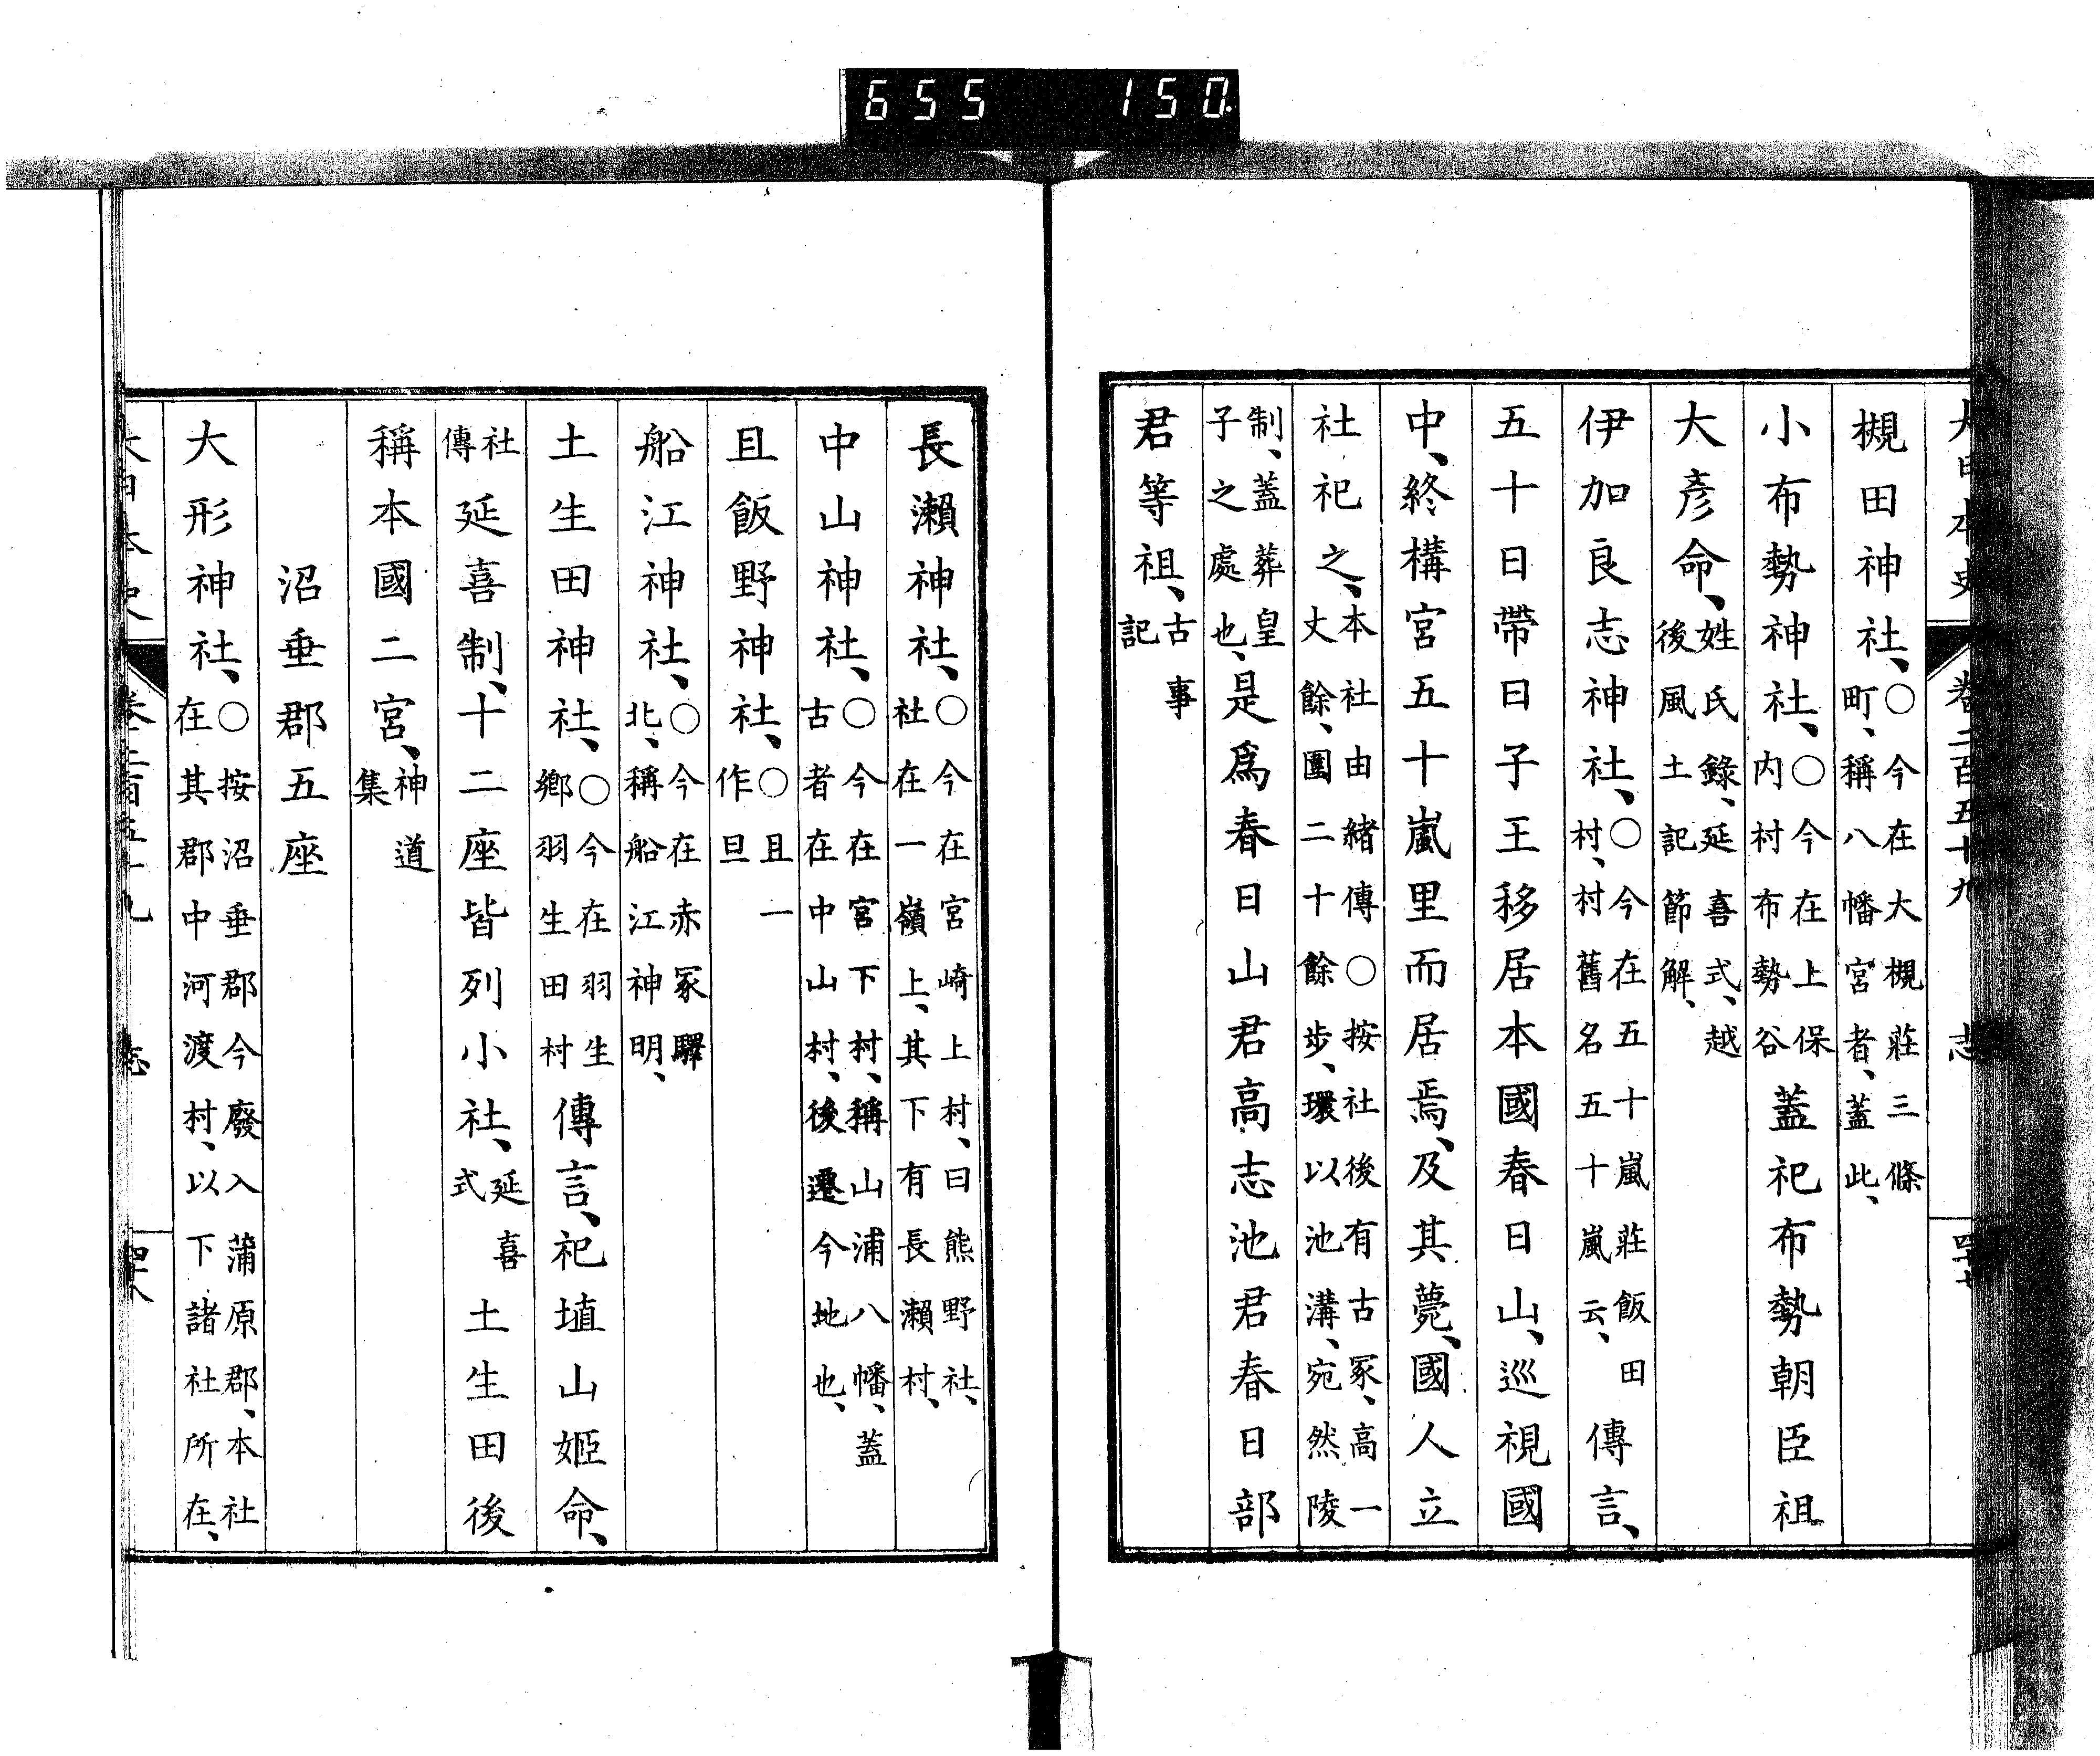 655 150
大日本史 卷二百五十九 志 四十七
槻田神社、○今在大槻莊三條町、稱八幡宮者、蓋此、
小布勢神社、○今在上保内村布勢谷蓋祀布勢朝臣祖
大彥命、姓氏錄、延喜式、越後風土記節解、
伊加良志神社、○今在五十嵐莊飯田村、村舊名五十嵐云、傳言、
五十日帶日子王移居本國春日山、巡視國
中、終構宮五十嵐里而居焉、及其薨、國人立
社祀之、本社由緒傳○按社後有古冢、高一丈餘、圍二十餘步、環以池溝、宛然陵
制、蓋葬皇子之處也、是爲春日山君高志池君春日部
君等祖、古事記
長瀨神社、○今在宮崎上村、曰熊野社、社在一嶺上、其下有長瀨村、
中山神社、○今在宮下村、稱山浦八幡、蓋古者在中山村、後遷今地也、
且飯野神社、○且一作旦
船江神社、○今在赤冢驛北、稱船江神明、
土生田神社、○今在羽生鄉羽生田村傳言、祀埴山姬命、
社傳延喜制、十二座皆列小社、延喜式土生田後
稱本國二宮、神道集
沼垂郡五座
大形神社、○按沼垂郡今廢入蒲原郡、本社在其郡中河渡村、以下諸社所在、
大日本史 卷二百五十九 志 四十八